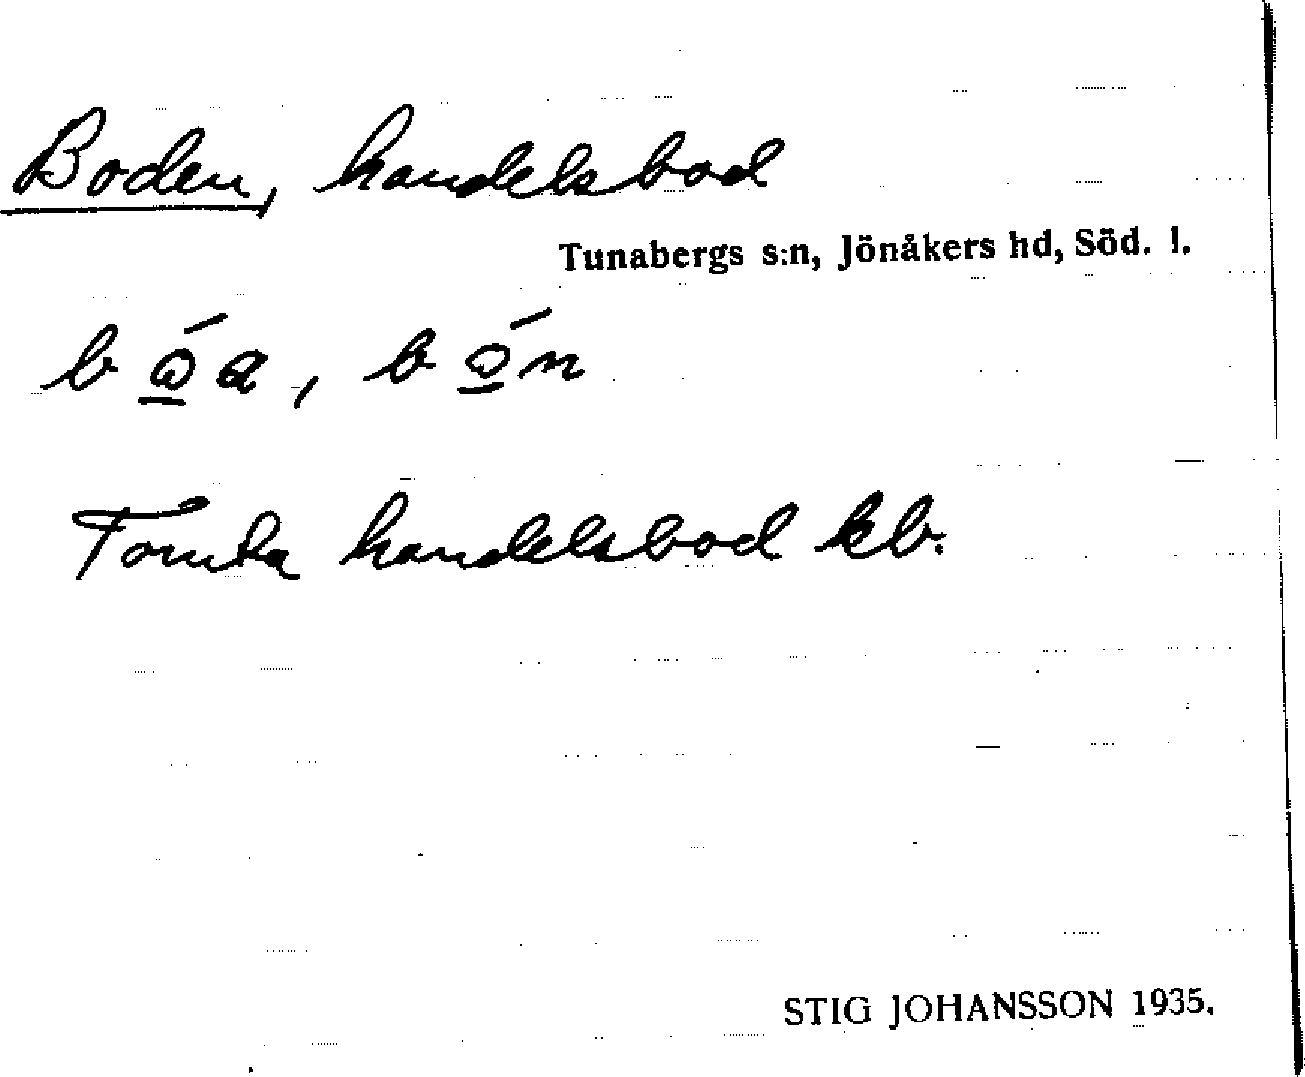 Boden, handelsbod
Tunabergs s:n, Jönåkers hd, Söd. l.
Tomta handelsbod kb.
STIG JOHANSSON 1935.